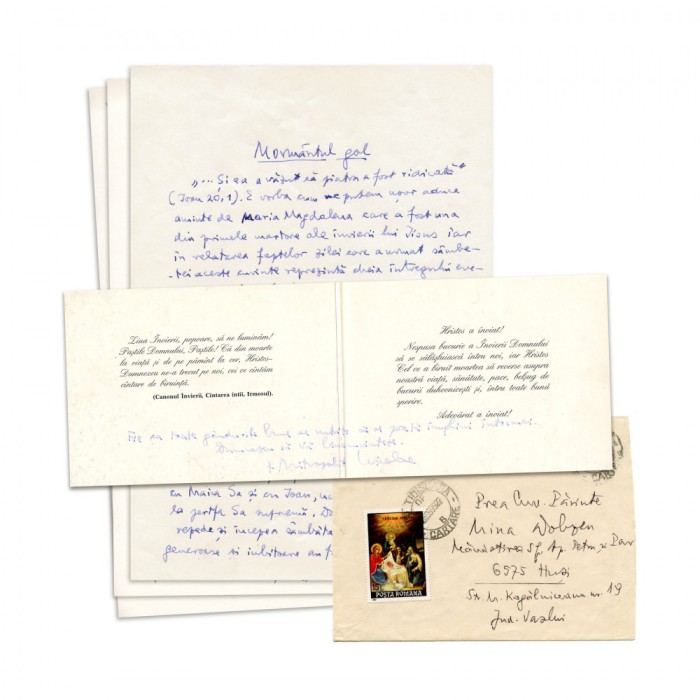 Mormântul gol
„...Și ea a văzut că piatra a fost ridicată"
(Ioan 20,1). E vorba cum ne putem ușor aduce
aminte de Maria Magdalena care a fost una
din primele martore ale învierii lui Iisus iar
în relatarea faptelor zilei care a urmat sâmbe-
tei aceste cuvinte reprezintă cheia întregului eve-
Ziua Învierii, popoare, să ne luminăm!
Paștile Domnului, Paștile! Că din moarte
la viață și de pe pămînt la cer, Hristos-
Dumnezeu ne-a trecut pe noi, cei ce cîntăm
cîntare de biruință.
(Canonul Învierii, Cîntarea întîi, Irmosul).
Hristos a înviat!
Nespusa bucurie a Învierii Domnului
să se sălășluiască întru noi, iar Hristos
Cel ce a biruit moartea să reverse asupra
noastră viață, sănătate, pace, belșug de
bucurii duhovnicești și, întru toate bună
sporire.
Adevărat a înviat!
Fie ca toate gândurile bune
Dumnezeu să vă binecuvinteze
+ Mitropolit Nicolae
cu Maica Sa și cu Ioan,
la jertfa Sa supremă.
repede și începea sâmbăta
generoase și iubitoare au f
TIMIȘOARA
CARTARE
CARTARE
POȘTA ROMÂNĂ
Prea Cuv. Părinte
Mina Dobzeu
Mănăstirea Sf. Ap. Petru și Pavel
6575 Huși
Str. M. Kogălniceanu nr. 19
Jud. Vaslui